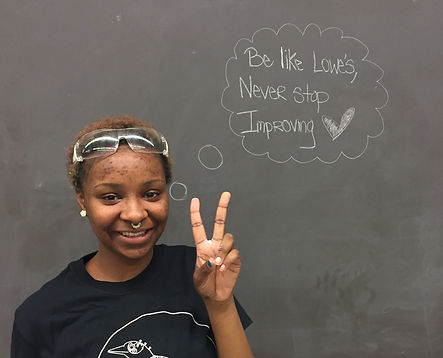 Be like Lowe's,
Never stop
Improving